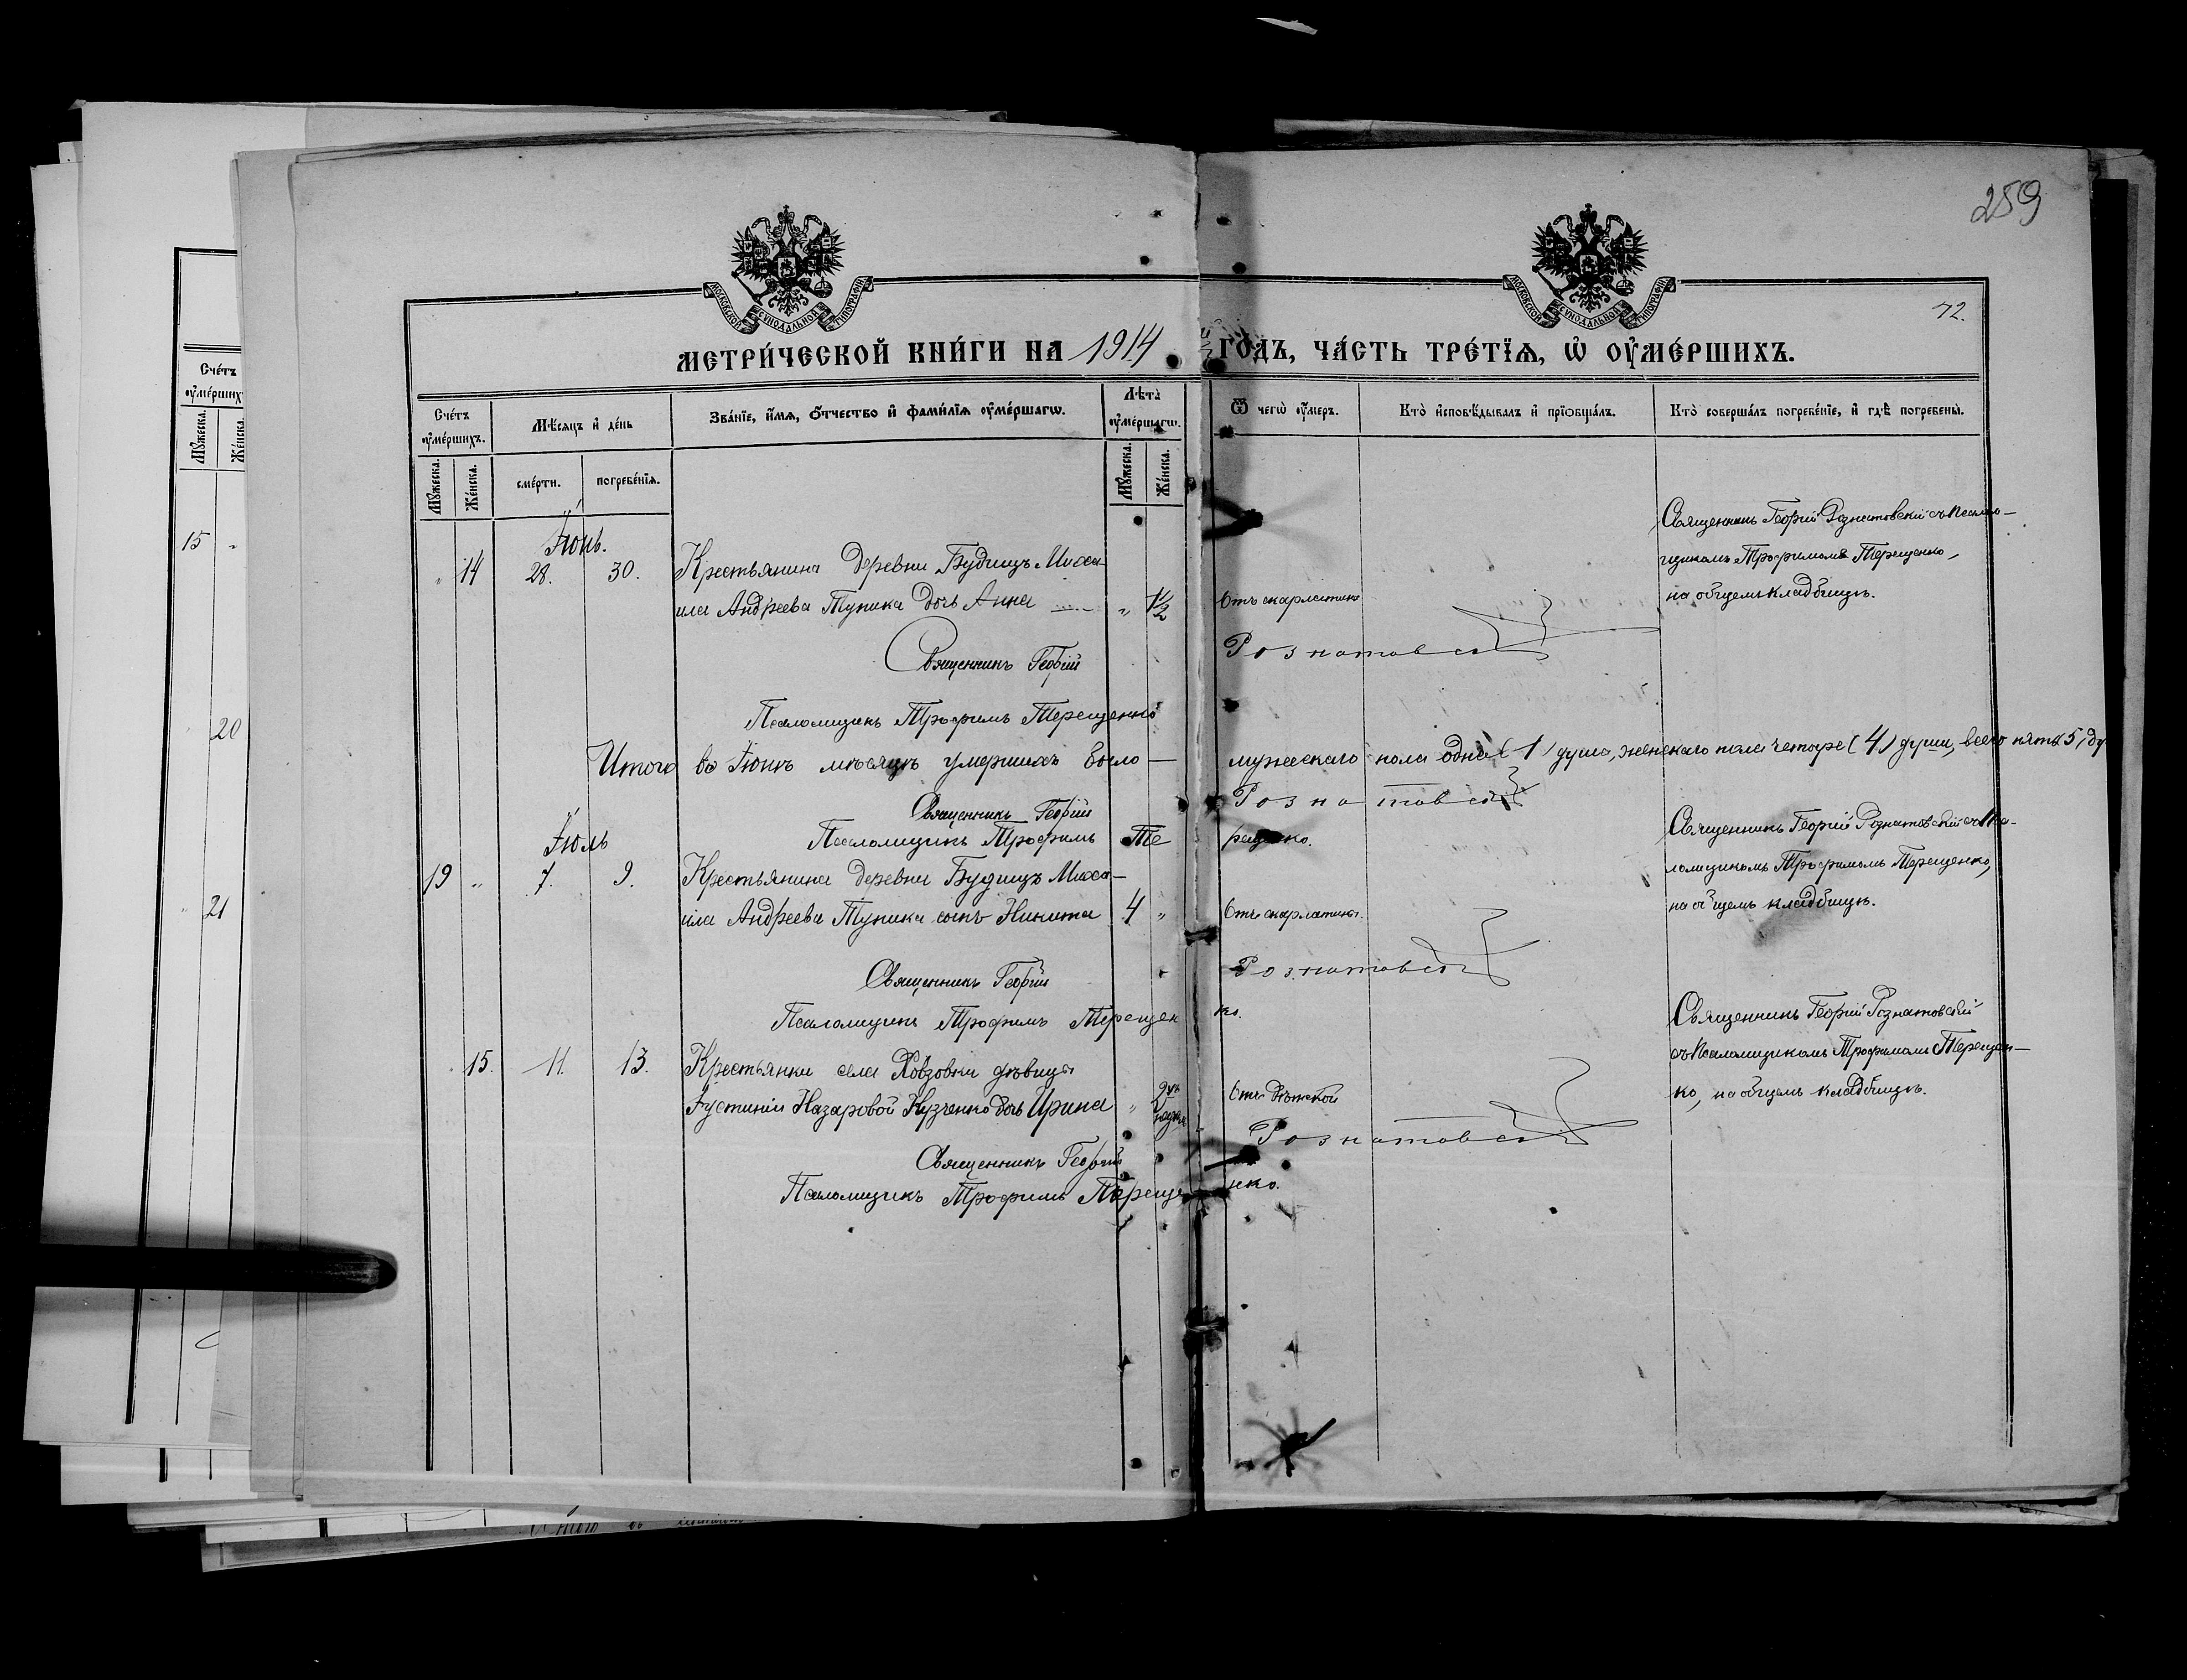 259
72.
МОСКОВСКОЙ СУНОДАЛЬНОЙ ТИПОГРАФІИ
МОСКОВСКОЙ СУНОДАЛЬНОЙ ТИПОГРАФІИ
МЕТРИ́ЧЕСКОЙ КНИ́ГИ НА 1914 ГО́ДЪ, ЧА́СТЬ ТРЕ́ТЇѦ, Ѡ҆ ОУ҆МЕ́РШИХЪ.
Сче́тъ оу҆ме́ршихъ.
Мѣ́сяцъ и҆ де́нь
Зва́нїе, и҆́мѧ, ѻ҆́тчество и҆ фами́лїѧ оу҆ме́ршагѡ.
Лѣ́та оу҆ме́ршагѡ.
Ѿ чегѡ̀ оу҆́меръ.
Кто̀ и҆сповѣ́дывалъ и҆ прїѻбща́лъ.
Кто̀ соверша́лъ погребе́нїе, и҆ гдѣ̀ погребены̀.
Мꙋ́жеска. Же́нска. сме́рти. погребе́нїѧ. Мꙋ́жеска. Же́нска.
Іюнь.
„ 14 28. 30. Крестьянина деревни Будищъ Миха-
ила Андреева Тупика дочь Анна „ 1½ Отъ скарлатины
Священникъ Георгій Рознатовскій съ псалом-
щикомъ Трофимомъ Терещенко,
на общемъ кладбищѣ.
Священникъ Георгій Рознатовскій
Псаломщикъ Трофимъ Терещенко
Итого въ Іюнѣ мѣсяцѣ умершихъ было — мужескаго пола одна (1) душа, женскаго пола четыре (4) души, всего пять (5) ду
Священникъ Георгій Рознатовскій
Псаломщикъ Трофимъ Терещенко.
Іюль
19 „ 7. 9. Крестьянина деревни Будищъ Миха-
ила Андреева Тупика сынъ Никита 4 „ Отъ скарлатины.
Священникъ Георгій Рознатовскій съ Пса-
ломщикомъ Трофимомъ Терещенко,
на общемъ кладбищѣ.
Священникъ Георгій Рознатовскій
Псаломщикъ Трофимъ Терещенко.
„ 15. 11. 13. Крестьянки села Ховзовки дѣвицы
Іустиніи Назаровой Кузченко дочь Ирина „ 2хъ
Священникъ Георгій Рознатовскій
съ Псаломщикомъ Трофимомъ Терещен-
ко, на общемъ кладбищѣ.
Священникъ Георгій Рознатовскій
Псаломщикъ Трофимъ Терещенко.
Сче́тъ
оу҆ме́рших
Мꙋ́жеска.
Же́нска.
15 „
20
21